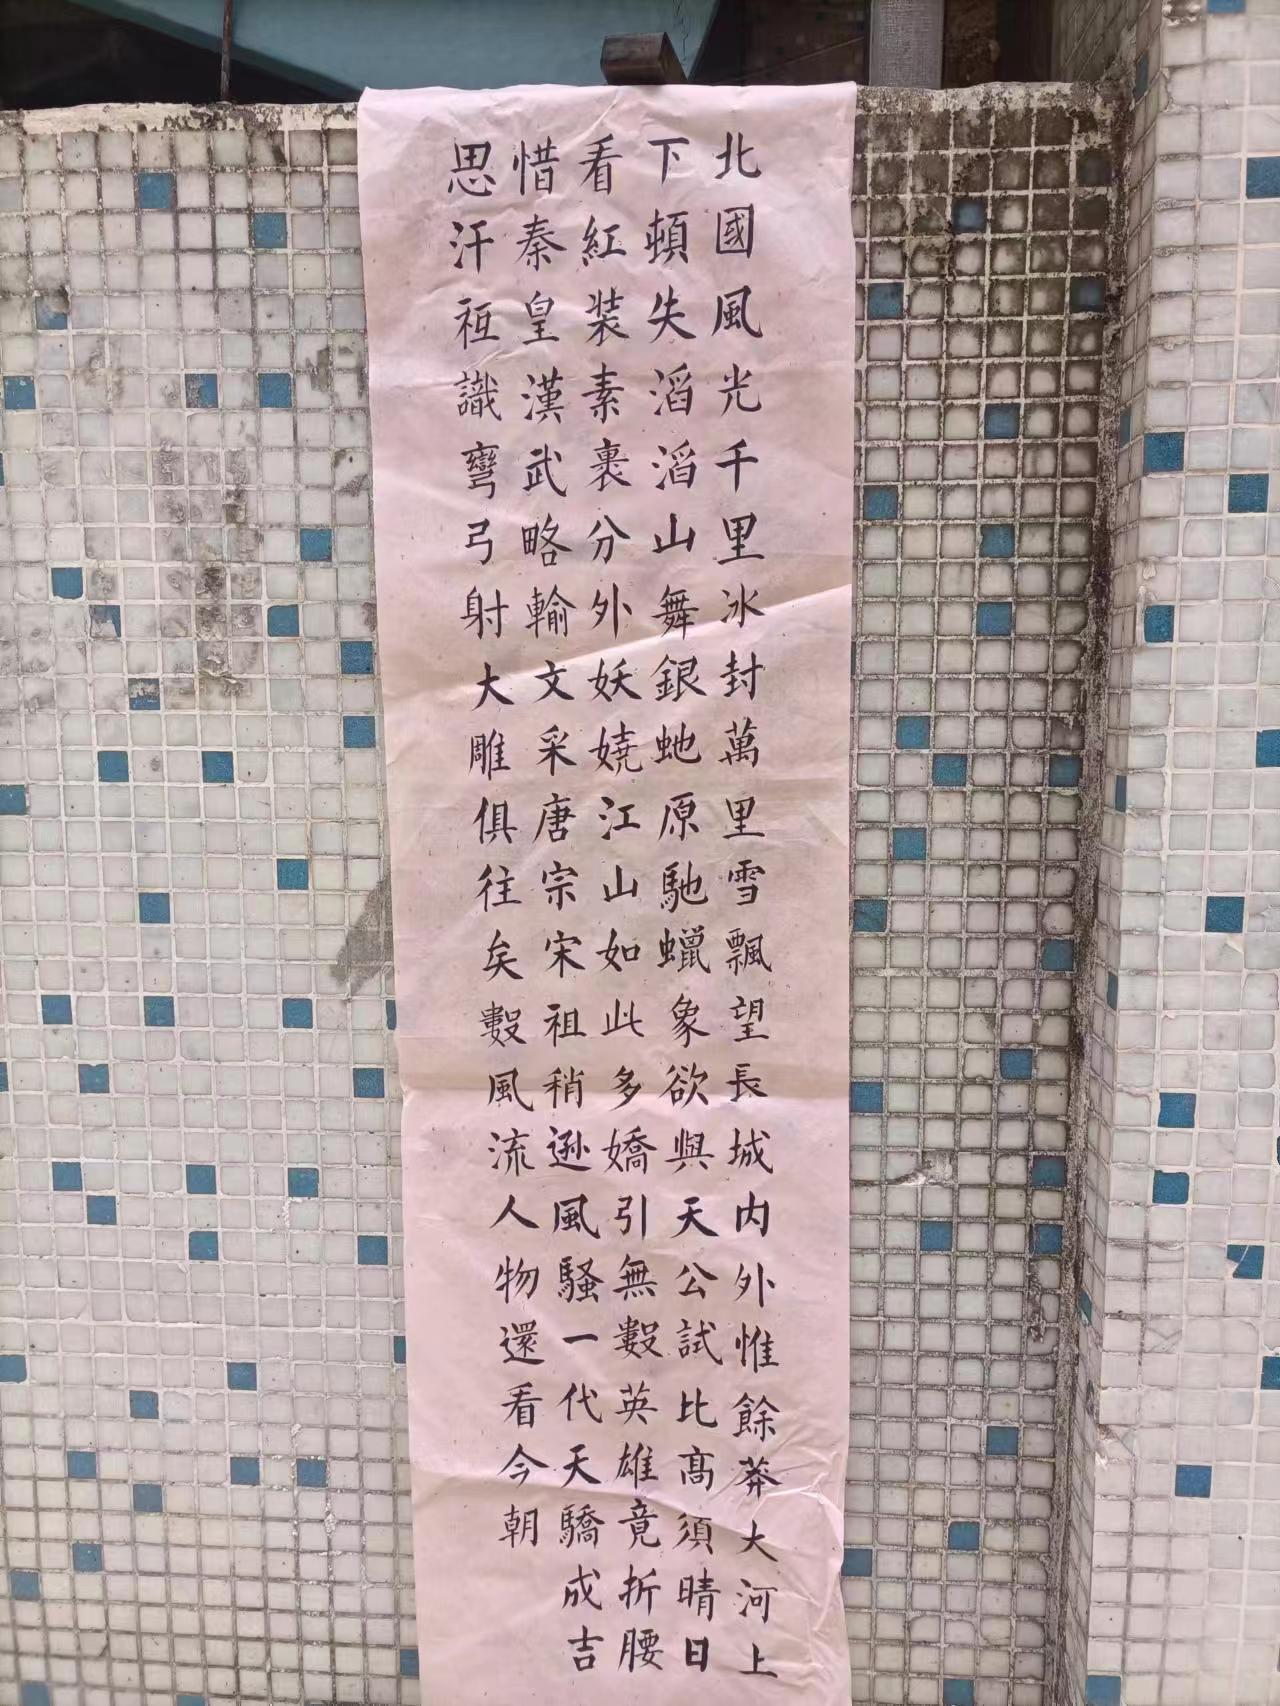 北國風光千里冰封萬里雪飄望長城内外惟餘莽大河上
下頓失滔滔山舞銀虵原馳蠟象欲與天公試比高須晴日
看紅装素裹分外妖嬈江山如此多嬌引無數英雄竟折腰
惜秦皇漢武略輸文采唐宗宋祖稍遜風騷一代天驕成吉
思汗祗識彎弓射大雕俱往矣數風流人物還看今朝